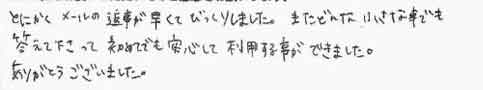 とにかく メールの 返事が早くて びっくりしました。 またどんな 小さな事でも
答えて下さって 初めてでも 安心して 利用する事が できました。
ありがとうございました。